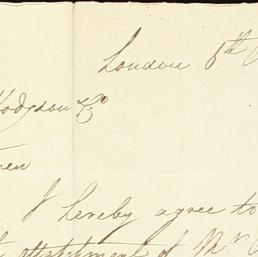 London 6th
Hodgson & Co
men
I hereby agree to
attachment of Mr